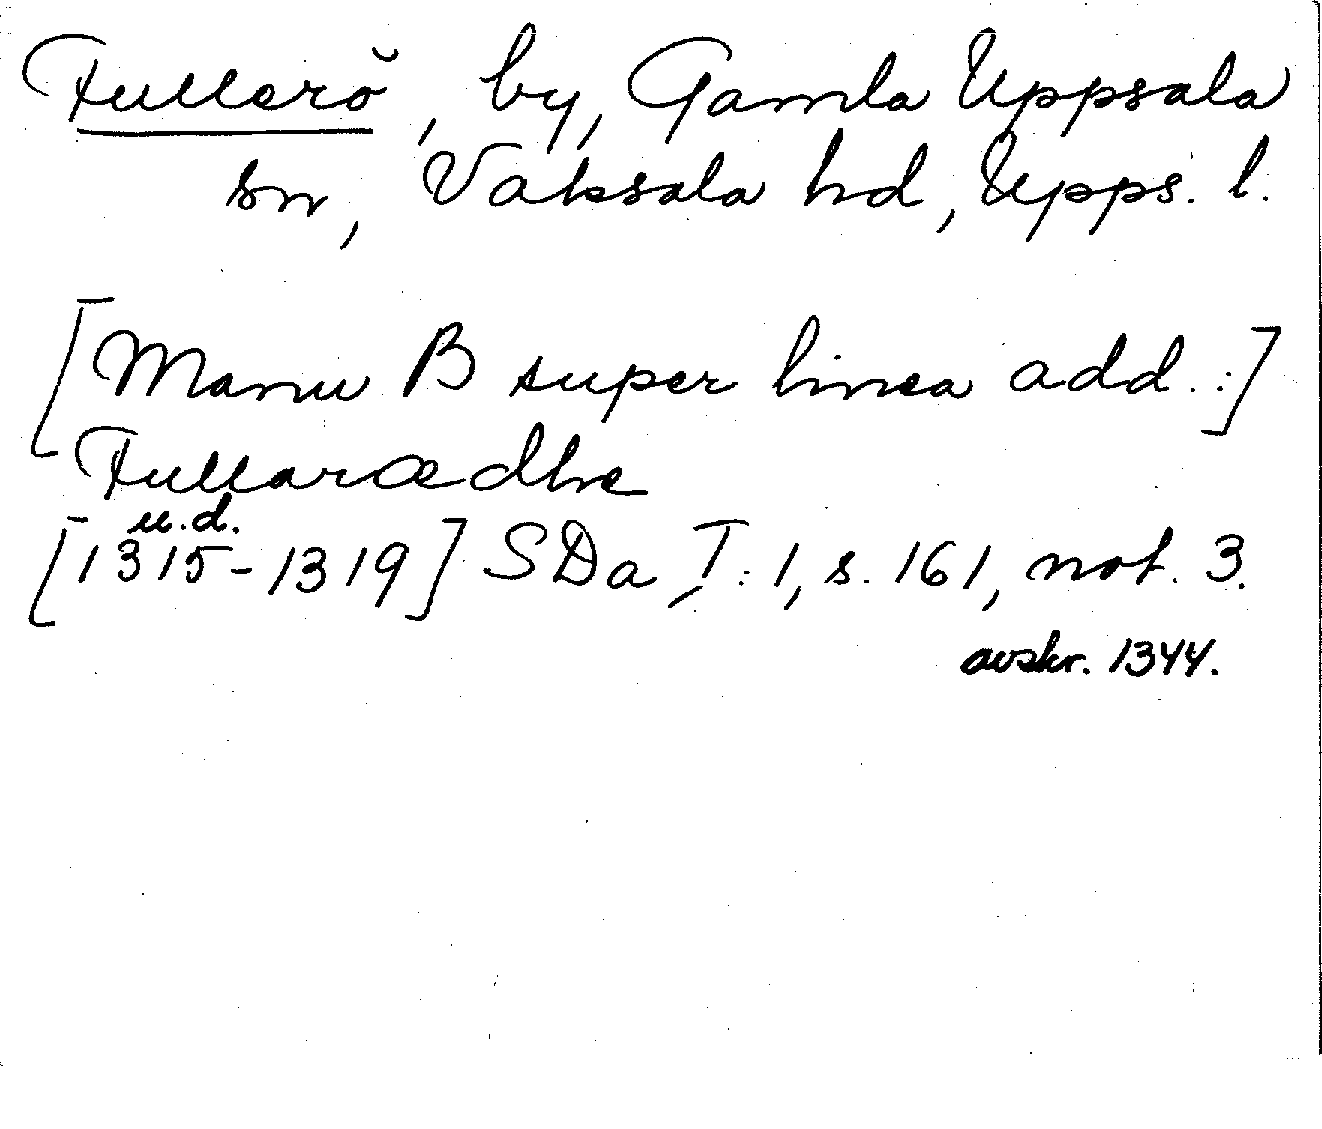 Fullerö, by, Gamla Uppsala
sn, Vaksala hd, Upps. l.
[Manu B super linea add.:]
Fullarædhe
u.d.
[1315-1319] SDa I:1, s. 161, not. 3.
avskr. 1344.